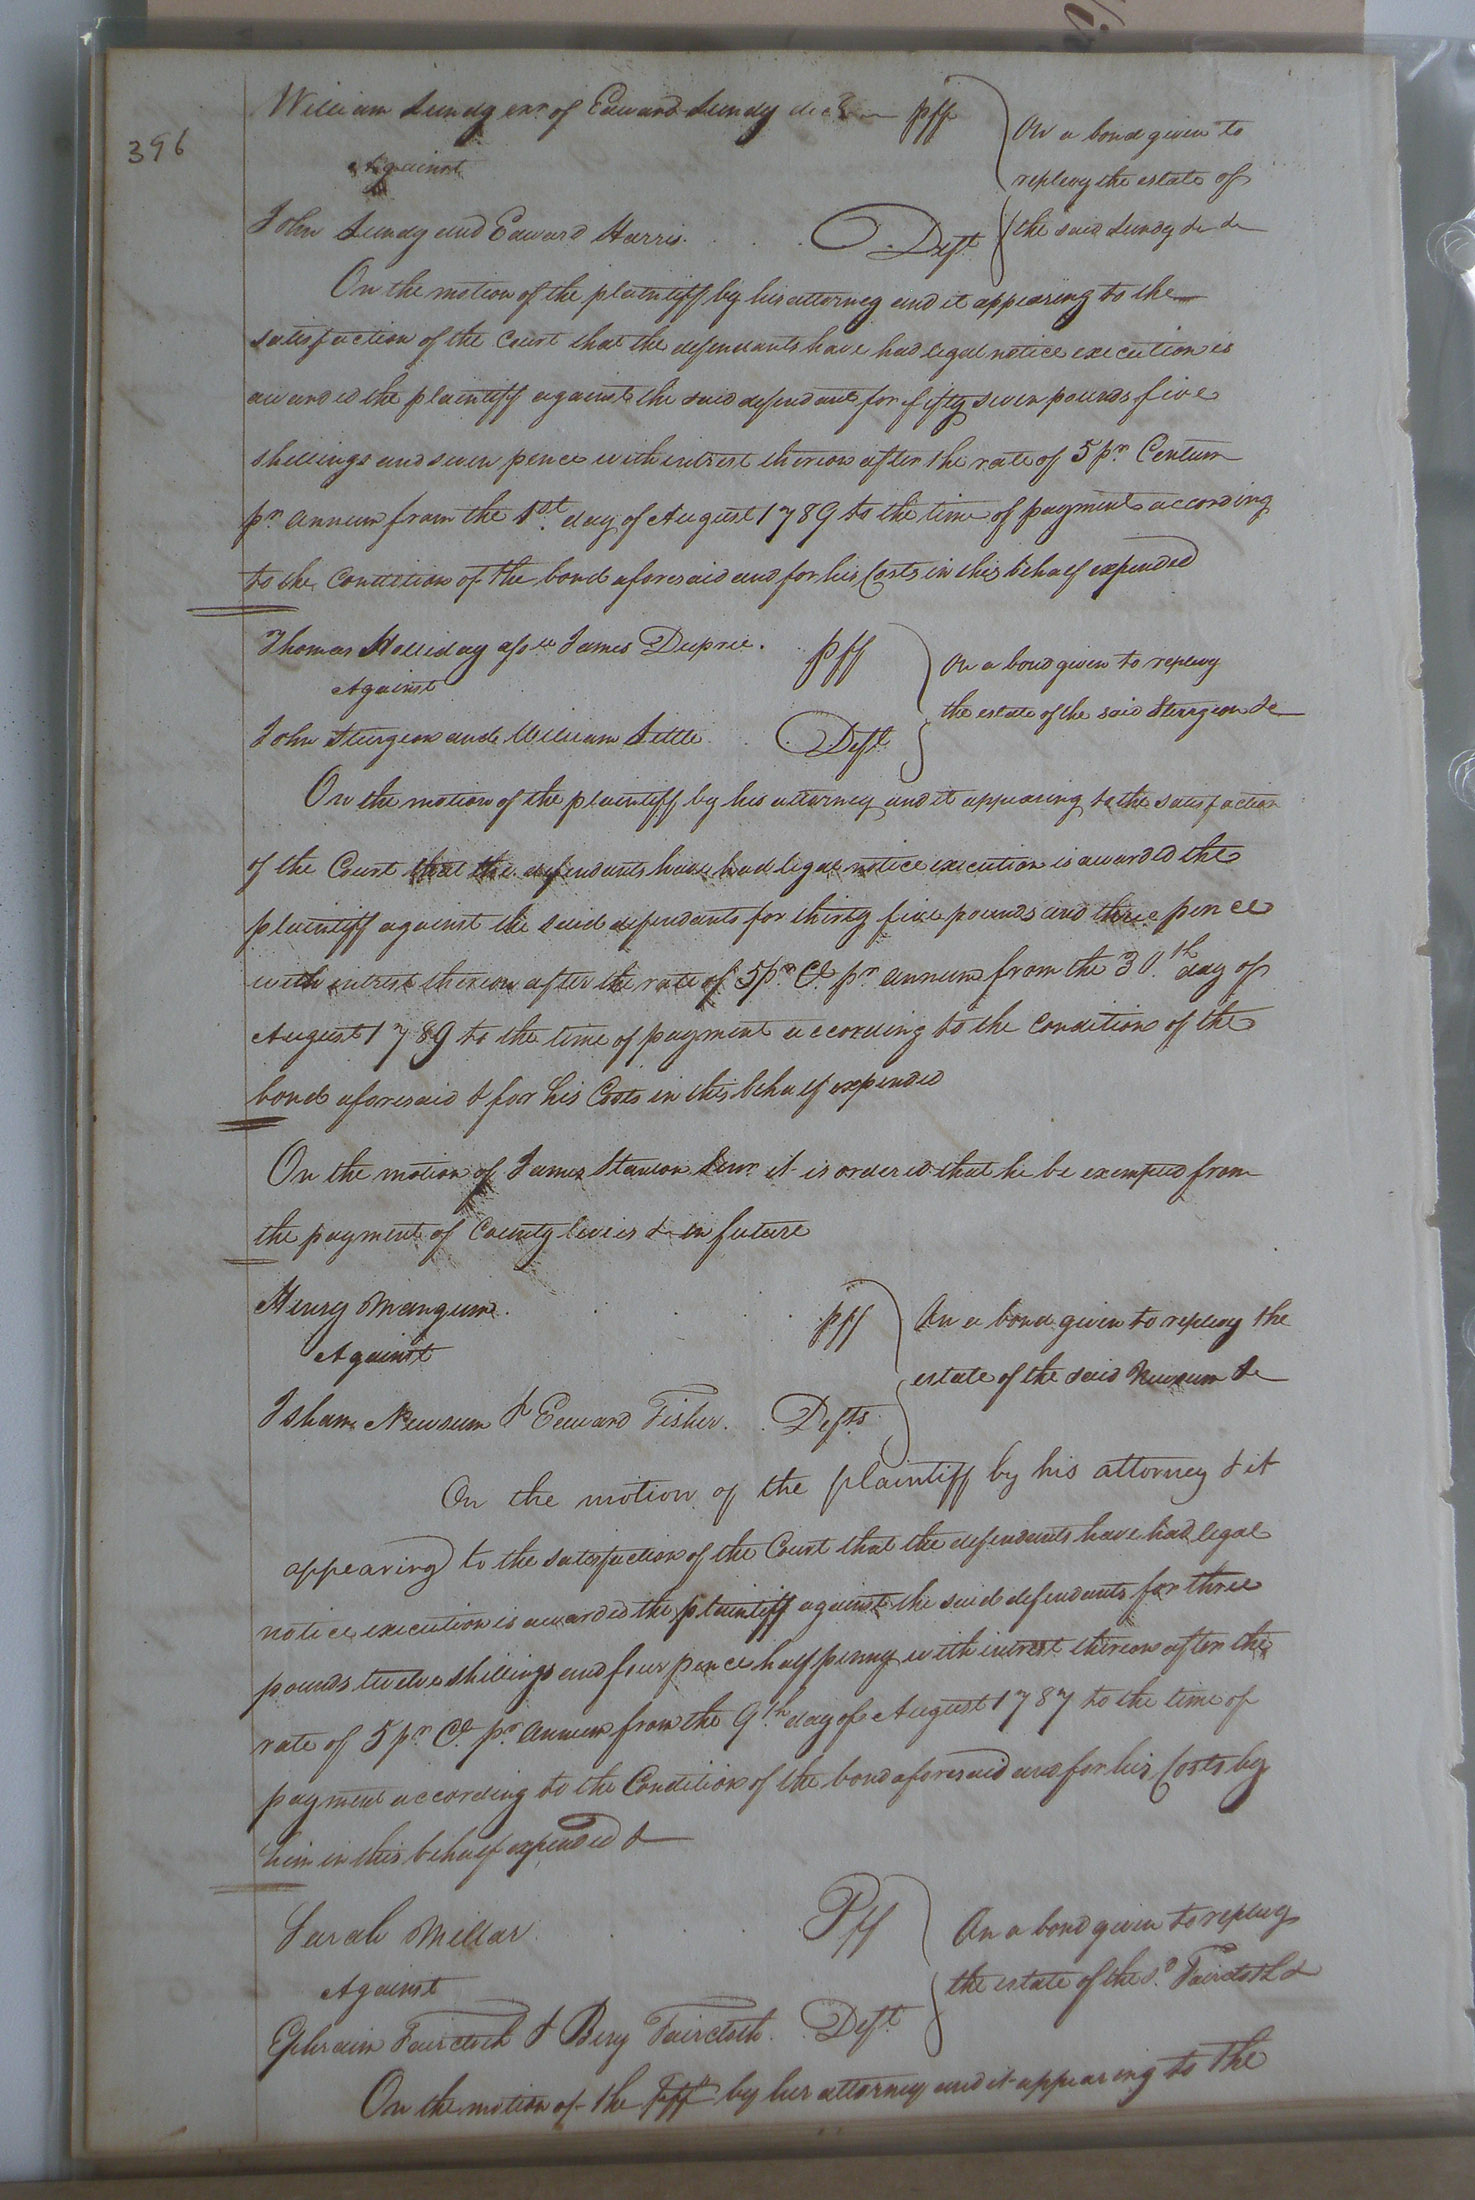 396
William Lundy exr. of Edward Lundy decd. plff
Against
John Lundy and Edward Harris. Deft
On a bond given to
replevy the estate of
the said Lundy &c &c
On the motion of the plaintiff by his attorney and it appearing to the
satisfaction of the Court that the defendants have had legal notice execution is
awarded the plaintiff against the said defendants for fifty seven pounds five
shillings and seven pence with intrest thereon after the rate of 5 pr. Centum
pr annum from the 1st. day of August 1789 to the time of payment according
to the Condition of the bond aforesaid and for his Costs in this behalf expended
Thomas Holliday assee James Dupree. plff
Against
John Sturgeon and William Little Deft
On a bond given to replevy
the estate of the said Sturgeon &c
On the motion of the plaintiff by his attorney and it appearing to the satisfaction
of the Court that the defendants have had legal notice execution is awarded the
plaintiff against the said defendants for thirty five pounds and three pence
with intrest thereon after the rate of 5 pr. Ct. pr annum from the 30.th day of
August 1789 to the time of payment according to the Condition of the
bond aforesaid & for his Costs in this behalf expended
On the motion of James Stanton Senr. it is ordered that he be exempted from
the payment of County levies & in future
Henry Mangum. plff
Against
Isham Newsum & Edward Fisher. Defts
On a bond given to replevy the
estate of the said Newsum &c
On the motion of the plaintiff by his attorney & it
appearing to the satisfaction of the Court that the defendants have had legal
notice execution is awarded the plaintiff against the said defendants for three
pounds twelve shillings and four pence half penny with intrest thereon after the
rate of 5 pr. Ct. pr. annum from the 9.th day of August 1787 to the time of
payment according to the Condition of the bond aforesaid and for his Costs by
him in this behalf expended &
Sarah Millar. Plff
Against
Ephraim Faircloth & Benj Faircloth. Deft
On a bond given to replevy
the estate of the sd. Faircloth &
On the motion of the plff by her attorney and it appearing to the